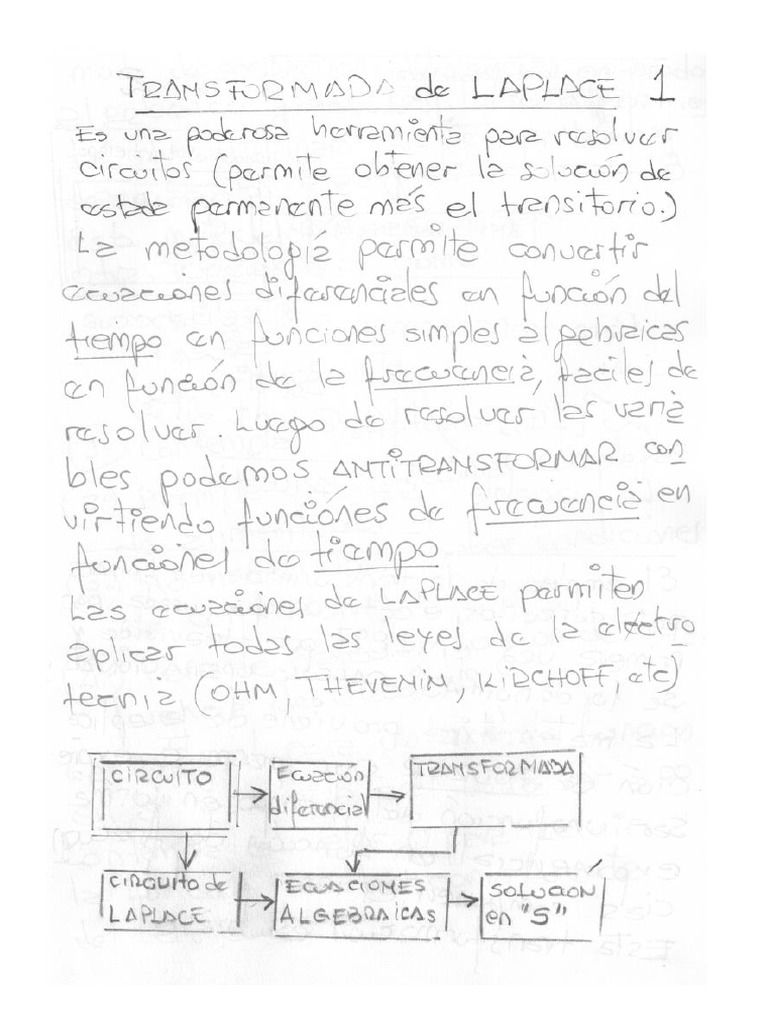 TRANSFORMADA de LAPLACE 1
Es una poderosa herramienta para resolver
circuitos (permite obtener la solución de
estado permanente más el transitorio.)
La metodología permite convertir
ecuaciones diferenciales en función del
tiempo en funciones simples algebraicas
en función de la frecuencia, fáciles de
resolver. Luego de resolver las varia
bles podemos ANTITRANSFORMAR con
virtiendo funciones de frecuencia en
funciones de tiempo
Las ecuaciones de LAPLACE permiten
aplicar todas las leyes de la electro
tecnia (OHM, THEVENIN, KIRCHOFF, etc)
CIRCUITO
Ecuación
diferencial
TRANSFORMADA
CIRCUITO de
LAPLACE
ECUACIONES
ALGEBRAICAS
SOLUCIÓN
en "S"